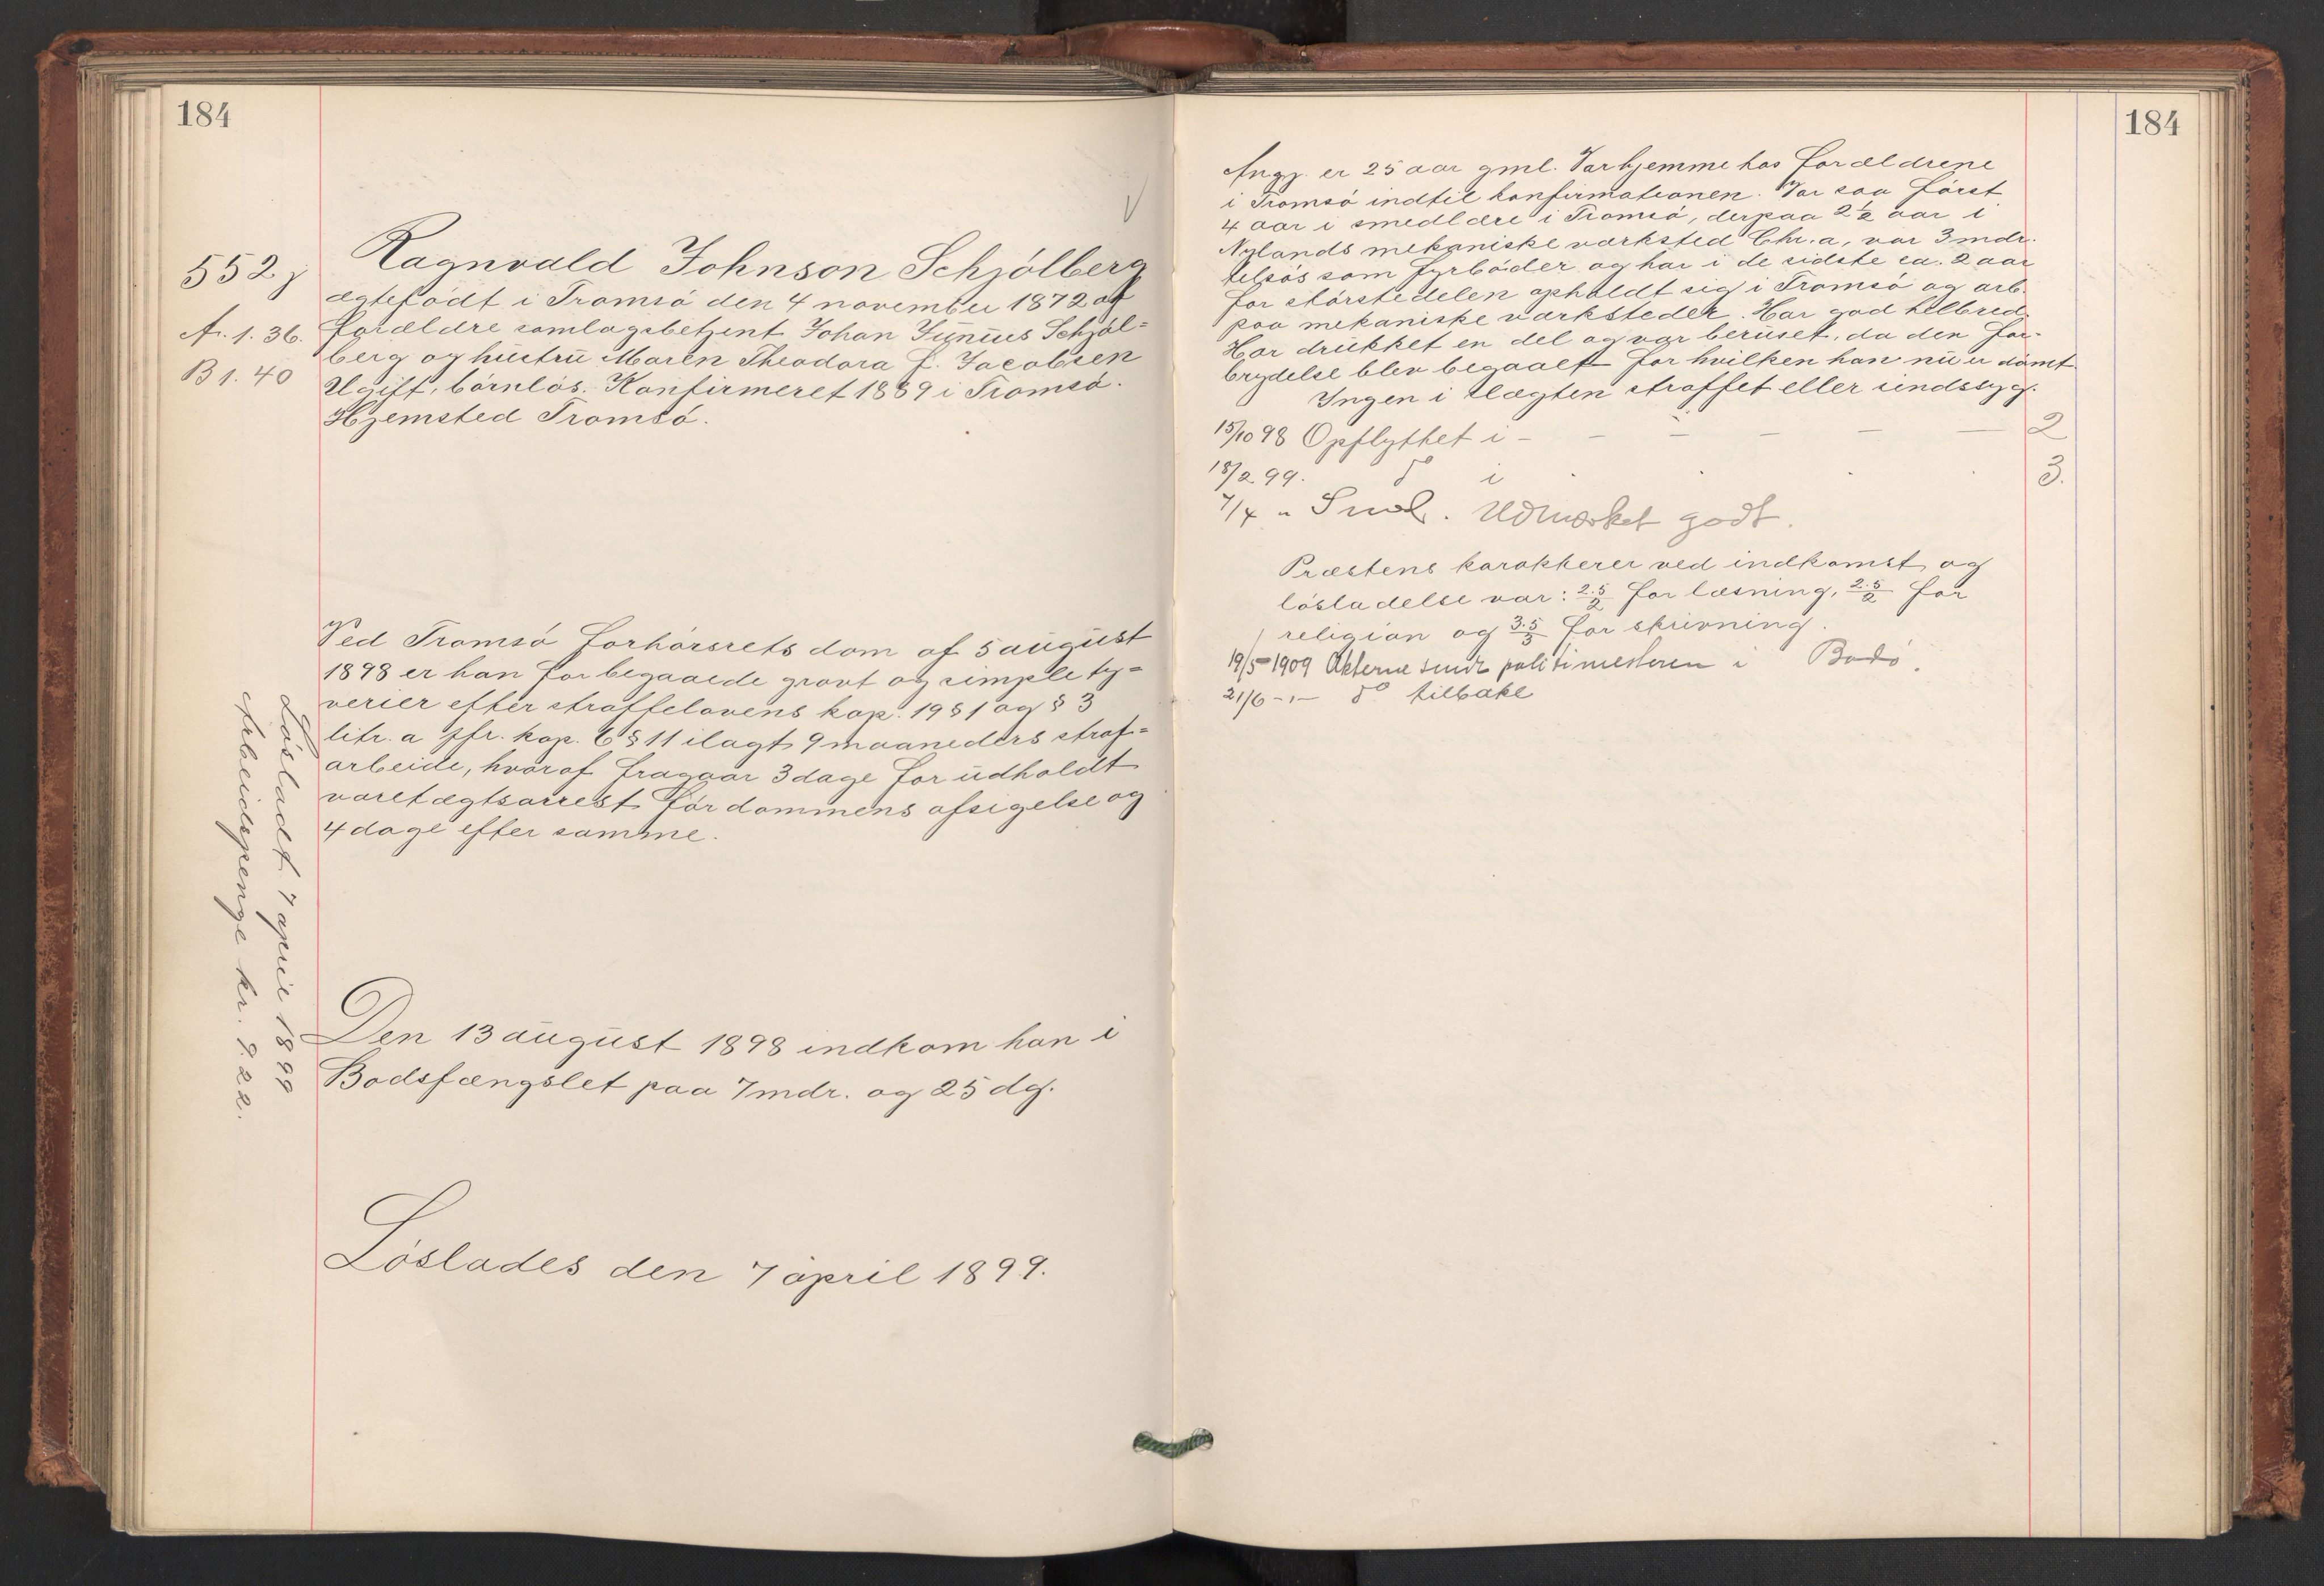 184
552 j
Ragnvald Johnson Schjölberg
ægtefödt i Tromsö den 4 november 1872 af
A. 1. 36. forældre samlagsbetjent Johan Junius Schjöl=
berg og hustru Maren Theodora f. Jacobsen
B 1. 40 Ugift, börnlös. Konfirmeret 1889 i Tromsö.
Hjemsted Tromsö.
Ved Tromsö forhörsrets dom af 5 august
1898 er han for begaaede grovt og simple ty=
verier efter straffelovens kap. 19 § 1 og § 3
litr. a jfr. kap. 6 § 11 ilagt 9 maaneders straf=
arbeide, hvoraf fragaar 3 dage for udholdt
varetægtsarrest för dommens afsigelse og
4 dage efter samme.
Lösladt 7 april 1899
Arbeidspenge kr. 9.22.
Den 13 august 1898 indkom han i
Bodsfængslet paa 7 mdr. og 25 dg.
Löslades den 7 april 1899.
184
Angj. er 25 aar gml. Var hjemme hos forældrene
i Tromsö indtil konfirmationen. Var saa först
4 aar i smedlære i Tromsö, derpaa 2½ aar i
Nylands mekaniske værksted Chr.a, var 3 mdr.
tilsjös som fyrböder og har i de sidste ca. 2 aar
for störstedelen opholdt sig i Tromsö og arb.
paa mekaniske værksteder. Har god helbred.
Har drukket en del og var beruset, da den for-
brydelse blev begaaet for hvilken han nu er dömt.
Ingen i slægten straffet eller sindssyg.
15/10 98 Opflyttet i - - - - - - 2
18/2 99. do i 3.
7/4 " Udmærket godt.
Præstens karakterer ved indkomst og
lösladelse var: 2.5/2 for læsning, 2.5/2 for
religion og 3.5/3 for skrivning.
19/5 1909 Akterne sendt politimesteren i Bodö.
21/6 -"- do tilbake